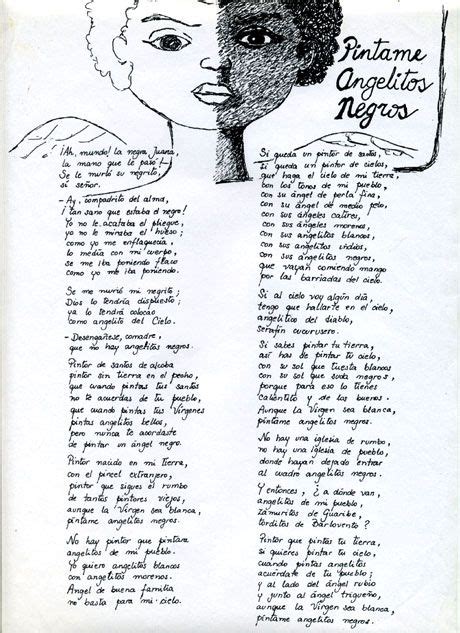 Píntame
Angelitos
Negros
¡Ah, mundo! la negra Juana,
la mano que le pasó!
Se le murió su negrito,
sí señor.
- Ay, compadrito del alma,
¡tan sano que estaba el negro!
Yo no le acataba el pliegue,
yo no le miraba el hueso;
como yo me enflaquecía,
lo medía con mi cuerpo,
se me iba poniendo flaco
como yo me iba poniendo.
Se me murió mi negrito;
Dios lo tendría dispuesto;
ya lo tendrá colocao
como angelito del Cielo.
- Desengáñese, comadre,
que no hay angelitos negros.
Pintor de santos de alcoba
pintor sin tierra en el pecho,
que cuando pintas tus santos
no te acuerdas de tu pueblo,
que cuando pintas tus Vírgenes
pintas angelitos bellos,
pero nunca te acordaste
de pintar un ángel negro.
Pintor nacido en mi tierra,
con el pincel extranjero,
pintor que sigues el rumbo
de tantos pintores viejos,
aunque la Virgen sea blanca,
píntame angelitos negros.
No hay pintor que pintara
angelitos de mi pueblo.
Yo quiero angelitos blancos
con angelitos morenos.
Ángel de buena familia
no basta para mi cielo.
Si queda un pintor de santos,
si queda un pintor de cielos,
que haga el cielo de mi tierra,
con los tonos de mi pueblo,
con su ángel de perla fina,
con su ángel de medio pelo,
con sus ángeles catires,
con sus ángeles morenos,
con sus angelitos blancos,
con sus angelitos indios,
con sus angelitos negros,
que vayan comiendo mango
por las barriadas del cielo.
Si al cielo voy algún día,
tengo que hallarte en el cielo,
angelitico del diablo,
serafín cucurusero.
Si sabes pintar tu tierra,
así has de pintar tu cielo,
con su sol que tuesta blancos
con su sol que suda negros,
porque para eso lo tienes
calientito y de los buenos.
Aunque la Virgen sea blanca,
píntame angelitos negros.
No hay una iglesia de rumbo,
no hay una iglesia de pueblo,
donde hayan dejado entrar
al cuadro angelitos negros.
Y entonces, ¿a dónde van,
angelitos de mi pueblo,
zamuritos de Guaribe,
torditos de Barlovento?
Pintor que pintas tu tierra,
si quieres pintar tu cielo,
cuando pintas angelitos
acuérdate de tu pueblo;
y al lado del ángel rubio
y junto al ángel trigueño,
aunque la Virgen sea blanca,
píntame angelitos negros.